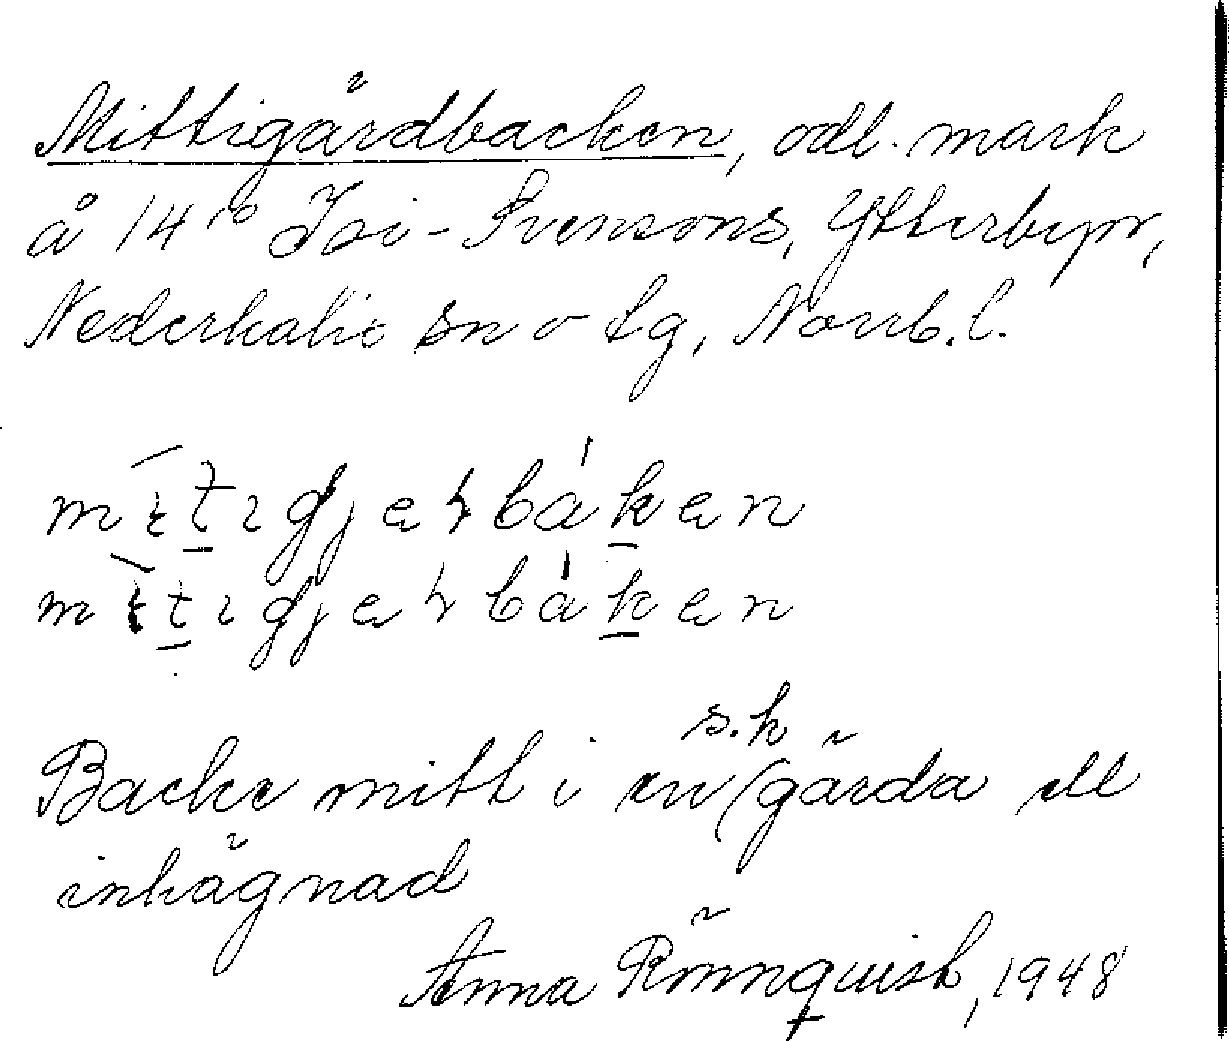 Mittigärdbacken, odl. mark
å 14¹⁰ Isi-Svensons, Ytterbyn,
Nederkalix sn o tg, Norrb. l.
mıtıgjerbáken
mıtıgjerbáken
Backe mitt i en s.k gärda ell
inhägnad
Anna Rönnquist, 1948